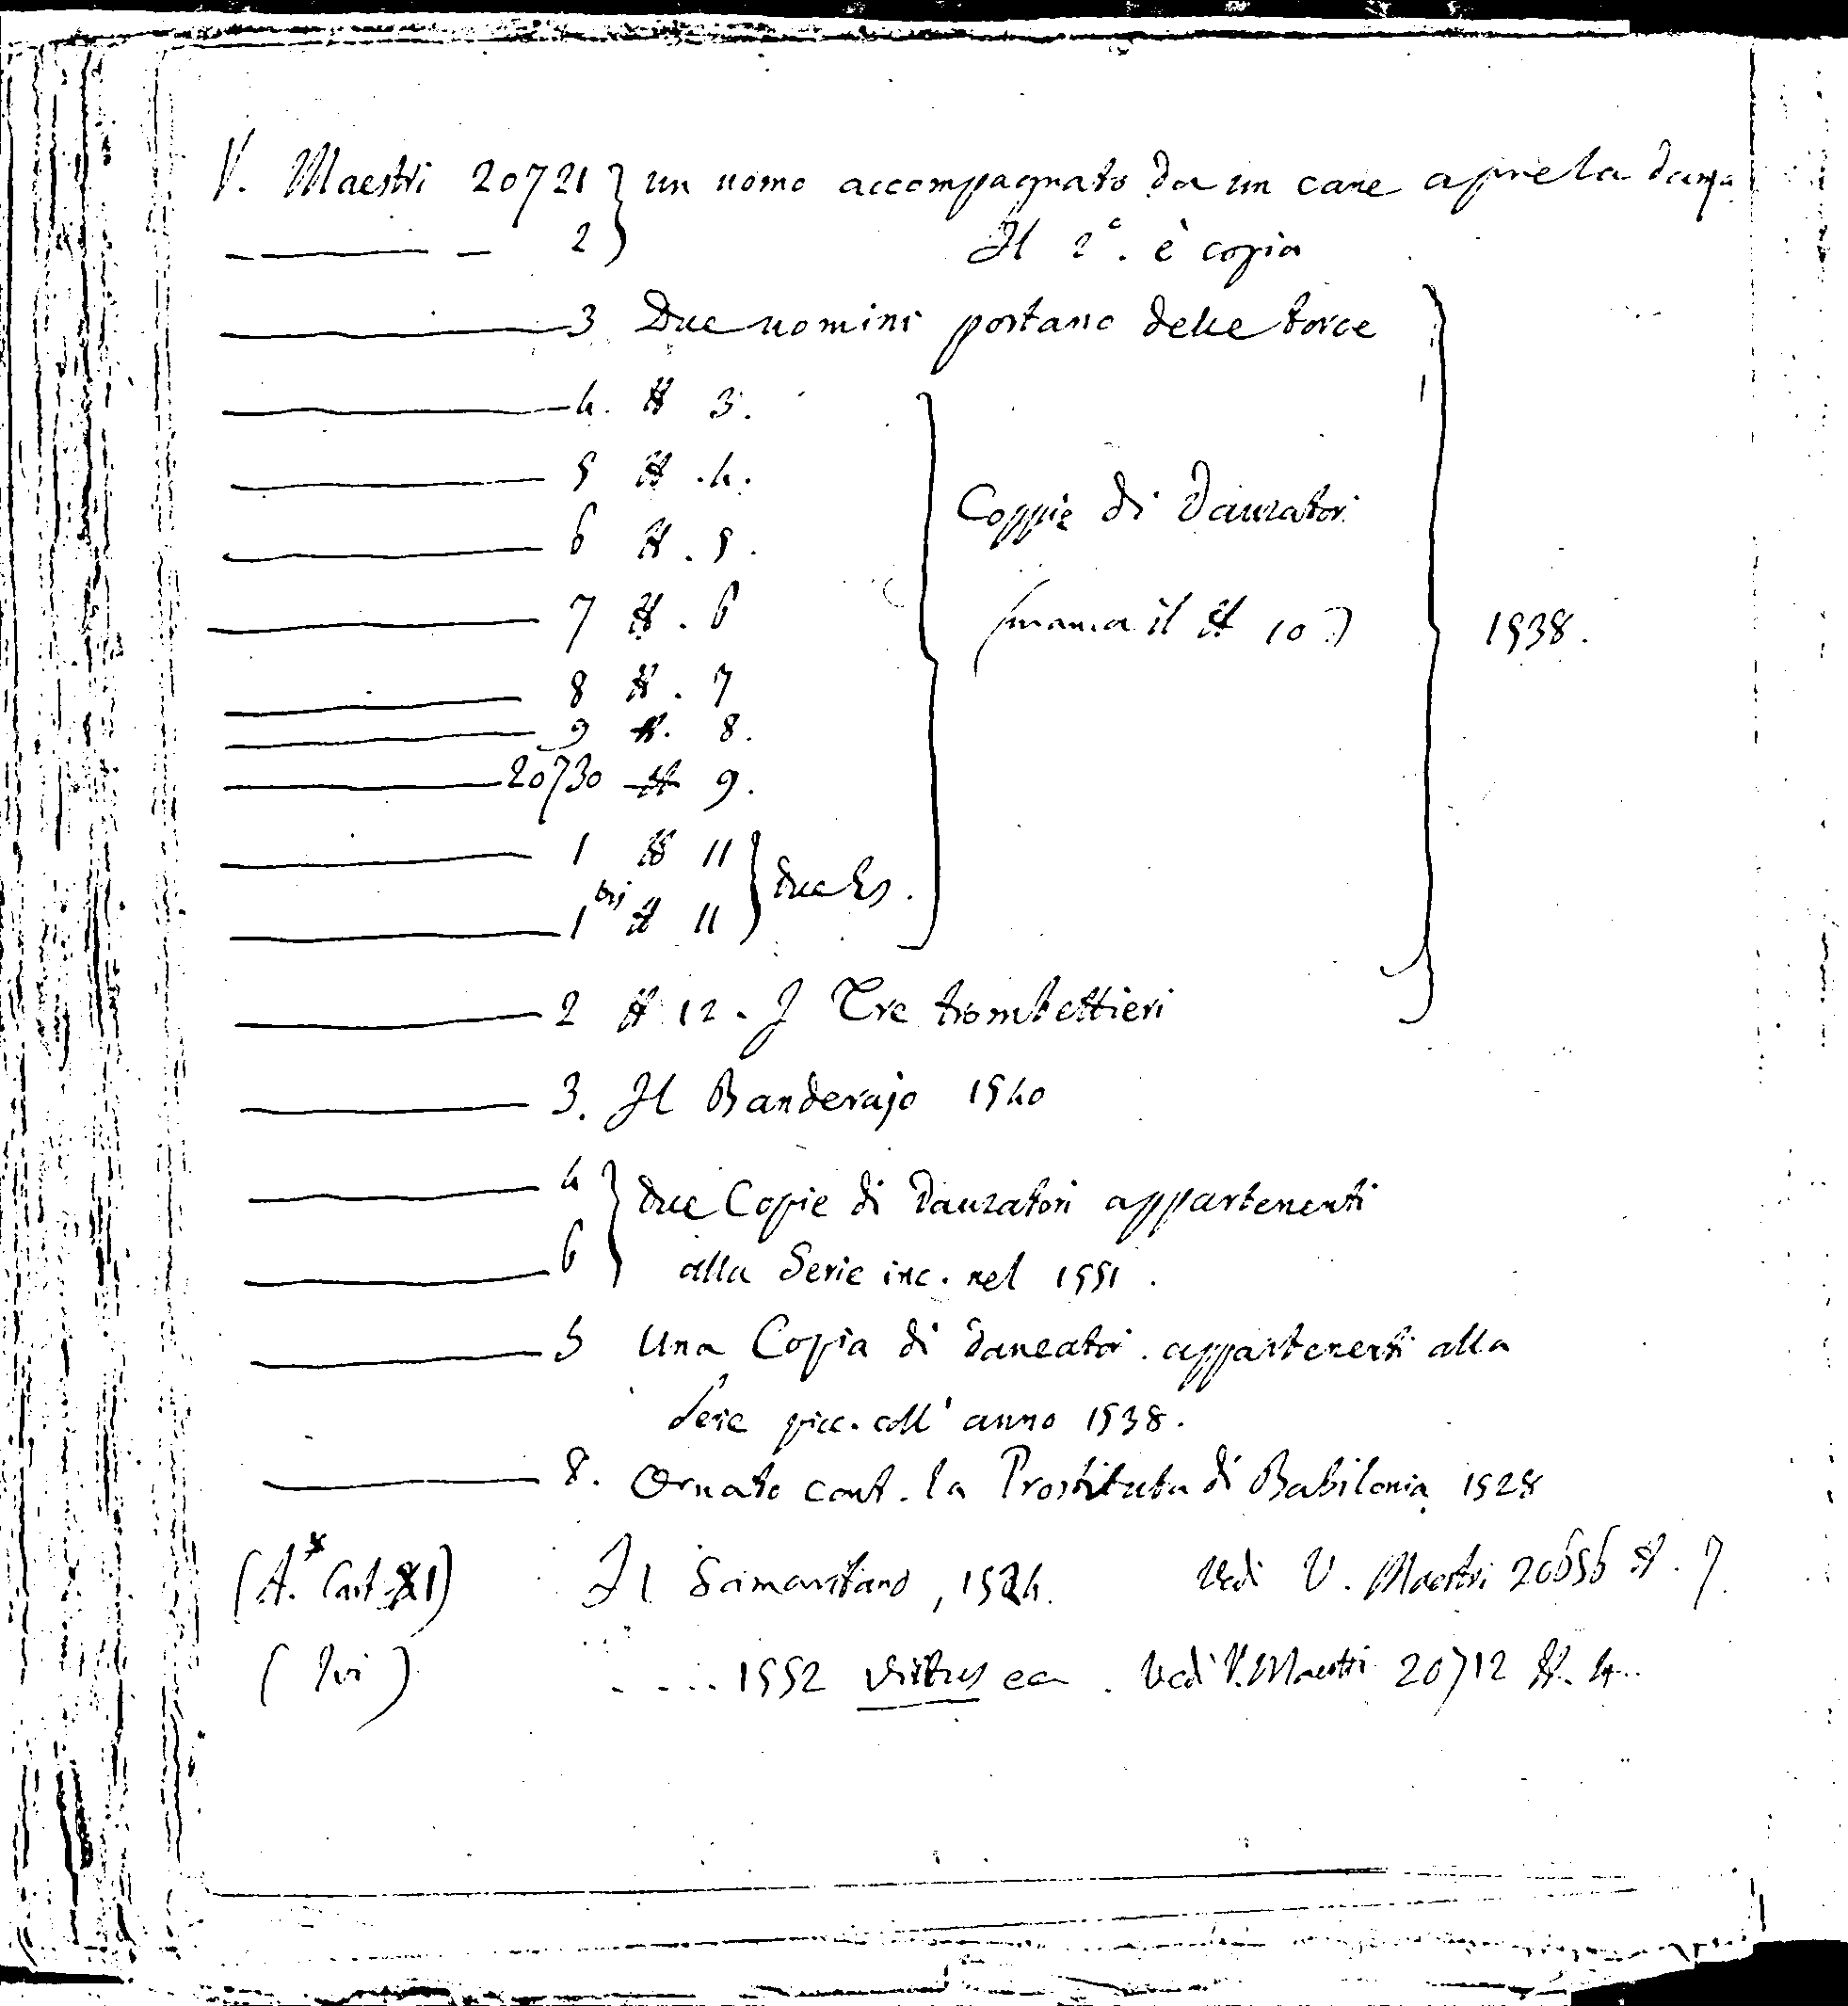 V. Maestri 20721 } un uomo accompagnato da un cane apre la danza
——— — 2 } Il 2°. è copia
——— 3 Due uomini portano delle torce
——— 4. N 3.
——— 5 N. 4.
——— 6 N. 5.
——— 7 N. 6
——— 8 N. 7
——— 9 N. 8.
——— 20730 N 9.
——— 1 N 11 } due Es.
——— 1 bis N 11
Coppie di Danzatori
(manca il N 10)
1538.
——— 2 N 12. I Tre trombettieri
——— 3. Il Banderajo 1540
——— 4 } due Copie di Danzatori appartenenti
——— 6 } alla Serie inc. nel 1551.
——— 5 Una Copia di Danzatori appartenenti alla
Serie picc. coll' anno 1538.
——— 8. Ornato cont. la Prostituta di Babilonia 1528
(A.* Cart. XI) Il Samaritano, 1554. Vedi V. Maestri 20656 N. 7.
(Ivi) ..... 1552 Virtus ec. Vedi V. Maestri 20712 N. 4.